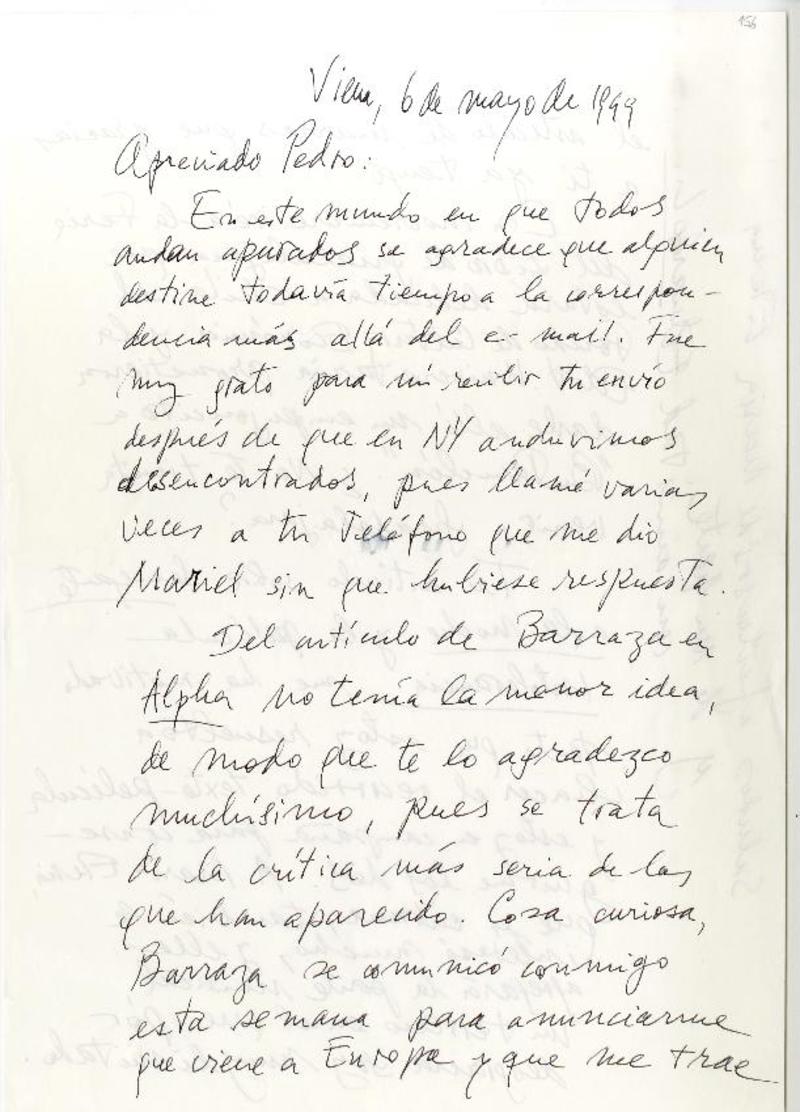 156
Viena, 6 de mayo de 1999
Apreciado Pedro:
En este mundo en que todos
andan apurados se agradece que alguien
destine todavía tiempo a la correspon-
dencia más allá del e-mail. Fue
muy grato para mí recibir tu envío
después de que en NY anduvimos
desencontrados, pues llamé varias
veces a tu teléfono que me dio
Mariel sin que hubiese respuesta.
Del artículo de Barraza en
Alpha no tenía la menor idea,
de modo que te lo agradezco
muchísimo, pues se trata
de la crítica más seria de las
que han aparecido. Cosa curiosa,
Barraza se comunicó conmigo
esta semana para anunciarme
que viene a Europa y que me trae